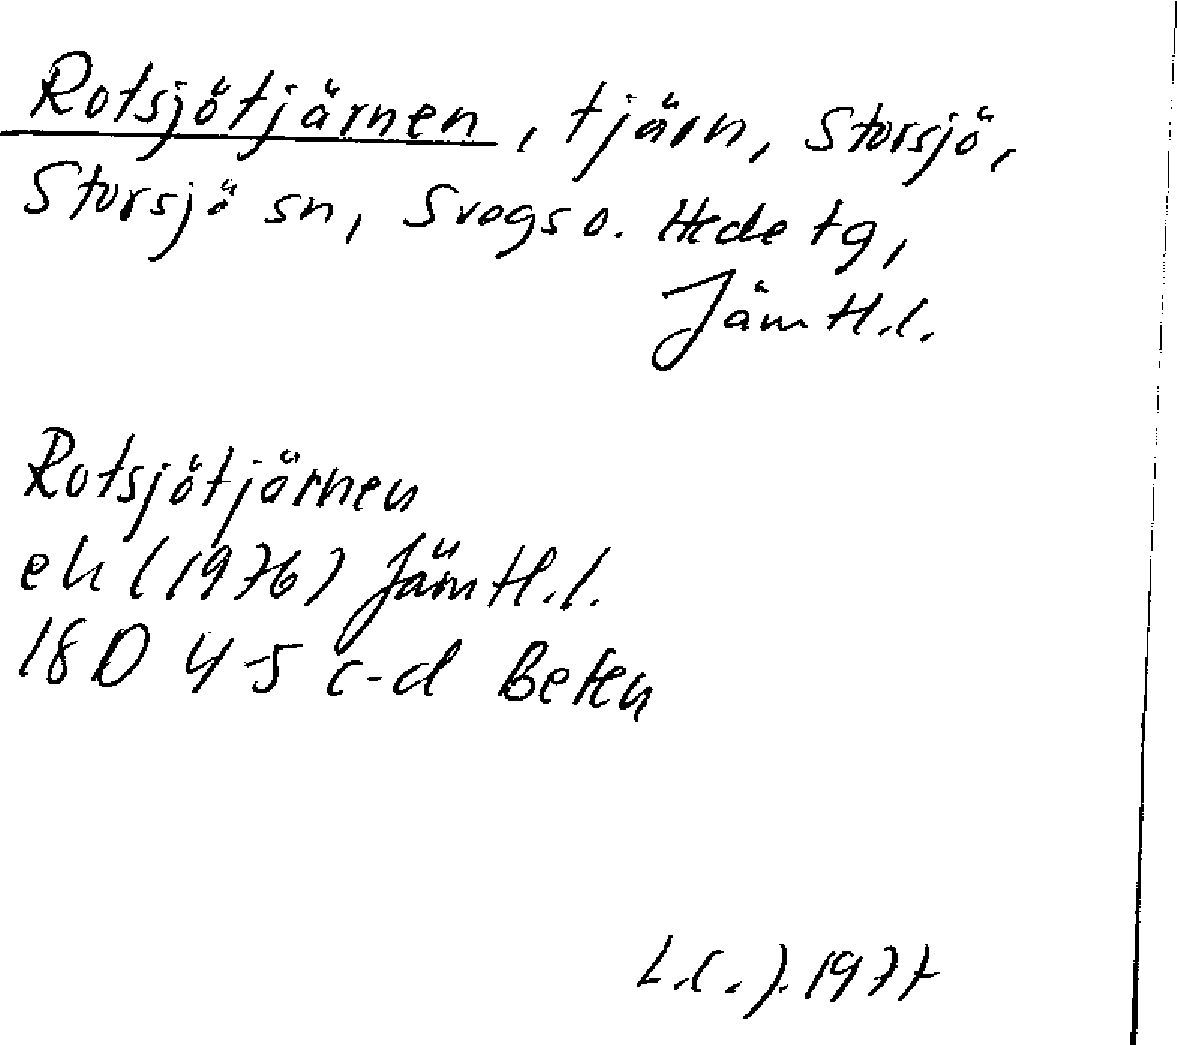 Rotsjötjärnen, tjärn, Storsjö,
Storsjö sn, Svegs o. Hede tg,
Jämtl.l.
Rotsjötjärnen
ek (1976) Jämtl.l.
18 D 4-5 c-d
L.C.J. 1977